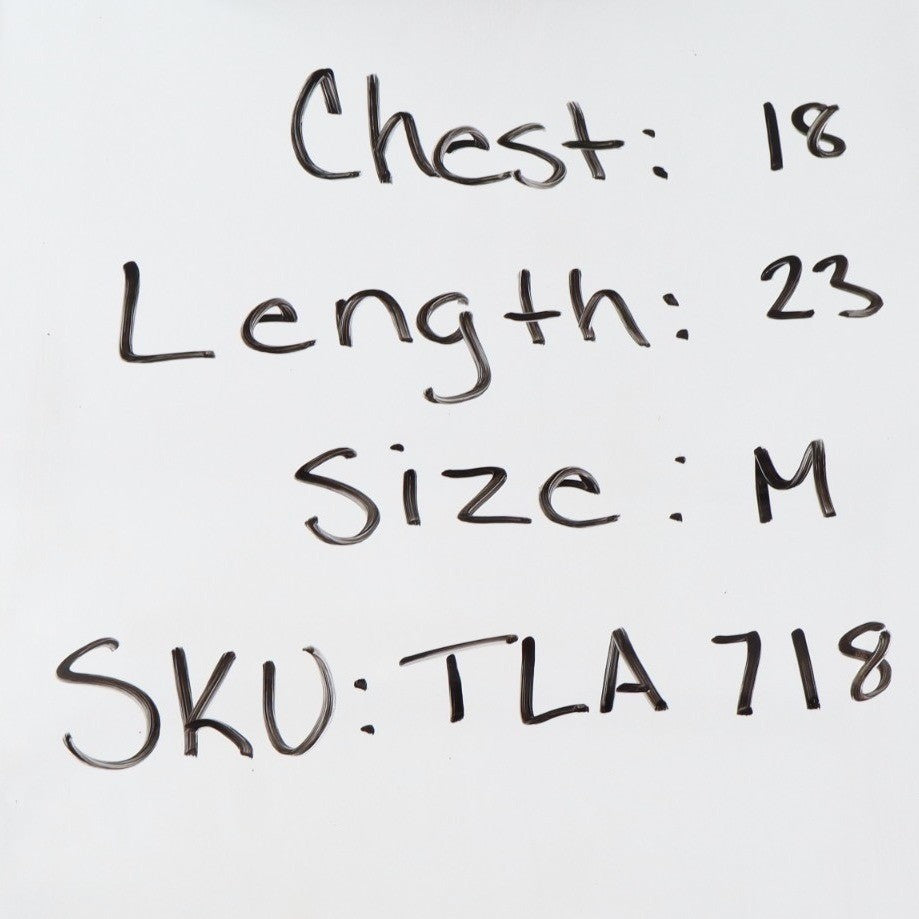 Chest: 18
Length: 23
Size: M
SKU: TLA 718